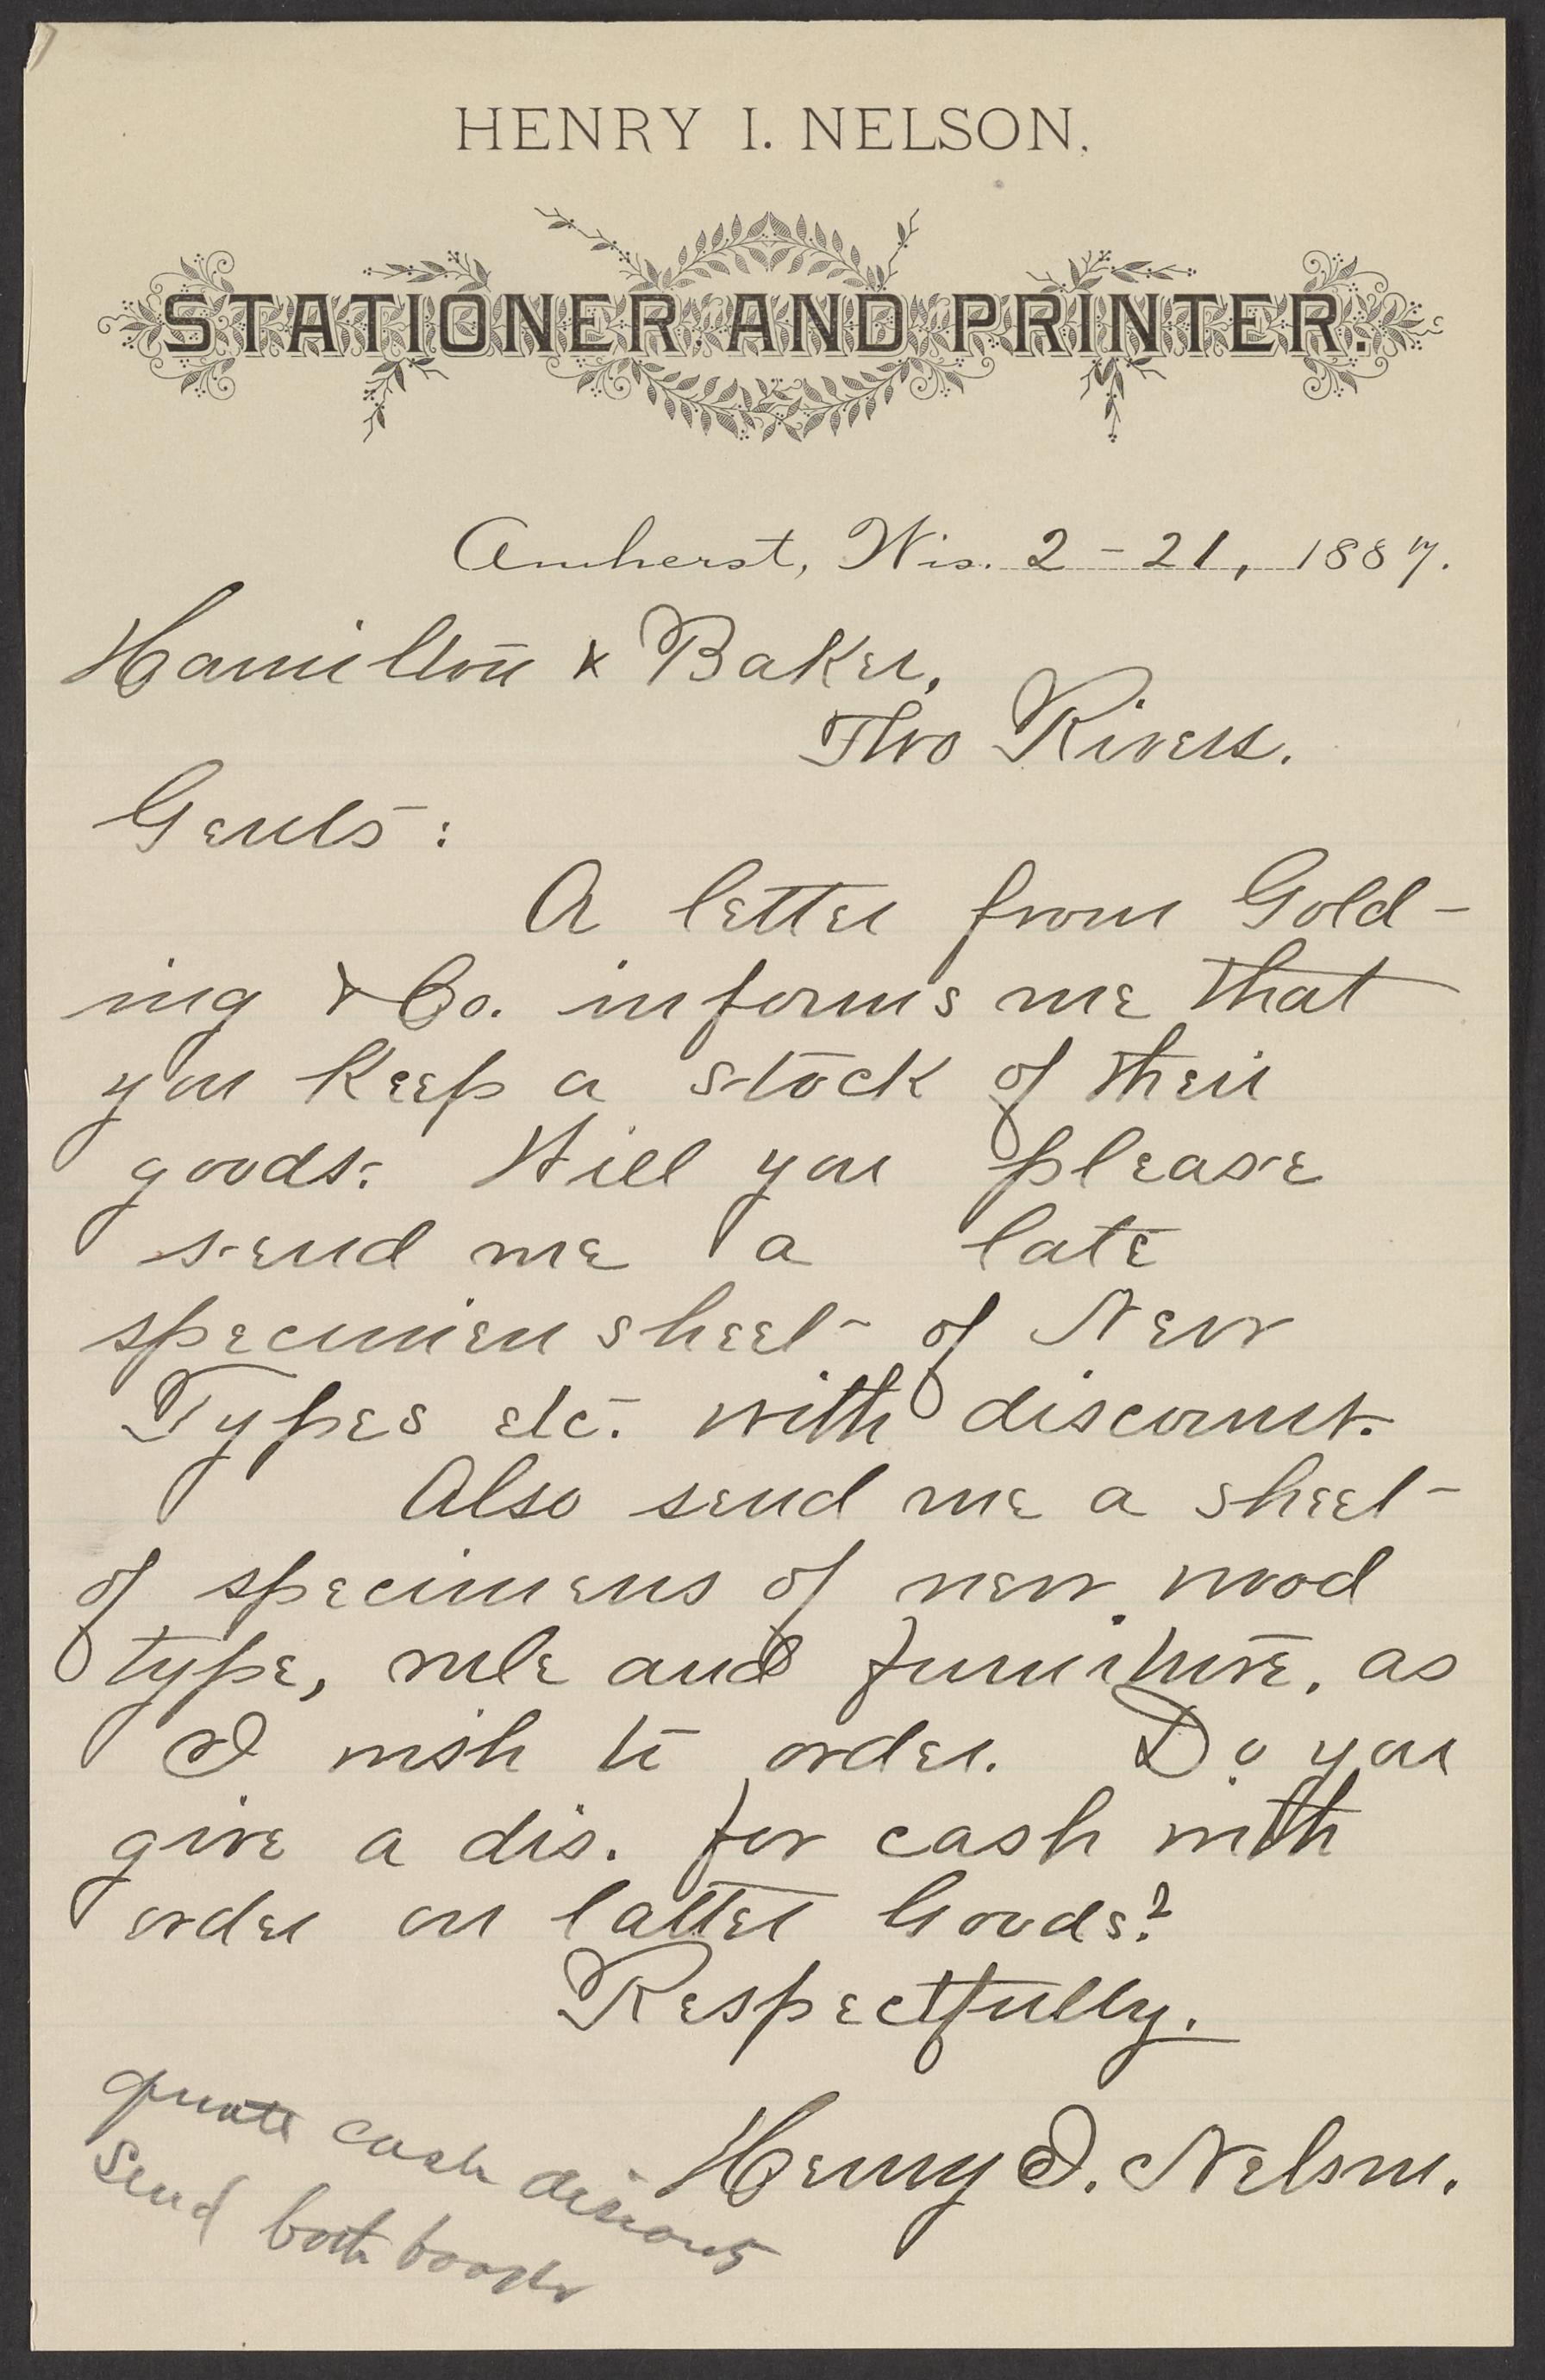 HENRY I. NELSON.
STATIONER AND PRINTER.
Amherst, Wis. 2-21, 1887.
Hamilton & Baker,
Two Rivers.
Gents:
A letter from Gold-
ing & Co. informs me that
you keep a stock of their
goods. Will you please
send me a late
specimen sheet of New
Types etc. with discount.
Also send me a sheet
of specimens of new wood
type, rule and furniture, as
I wish to order. Do you
give a dis. for cash with
order on latter goods?
Respectfully.
Henry I. Nelson.
quote cash discount
Send both books